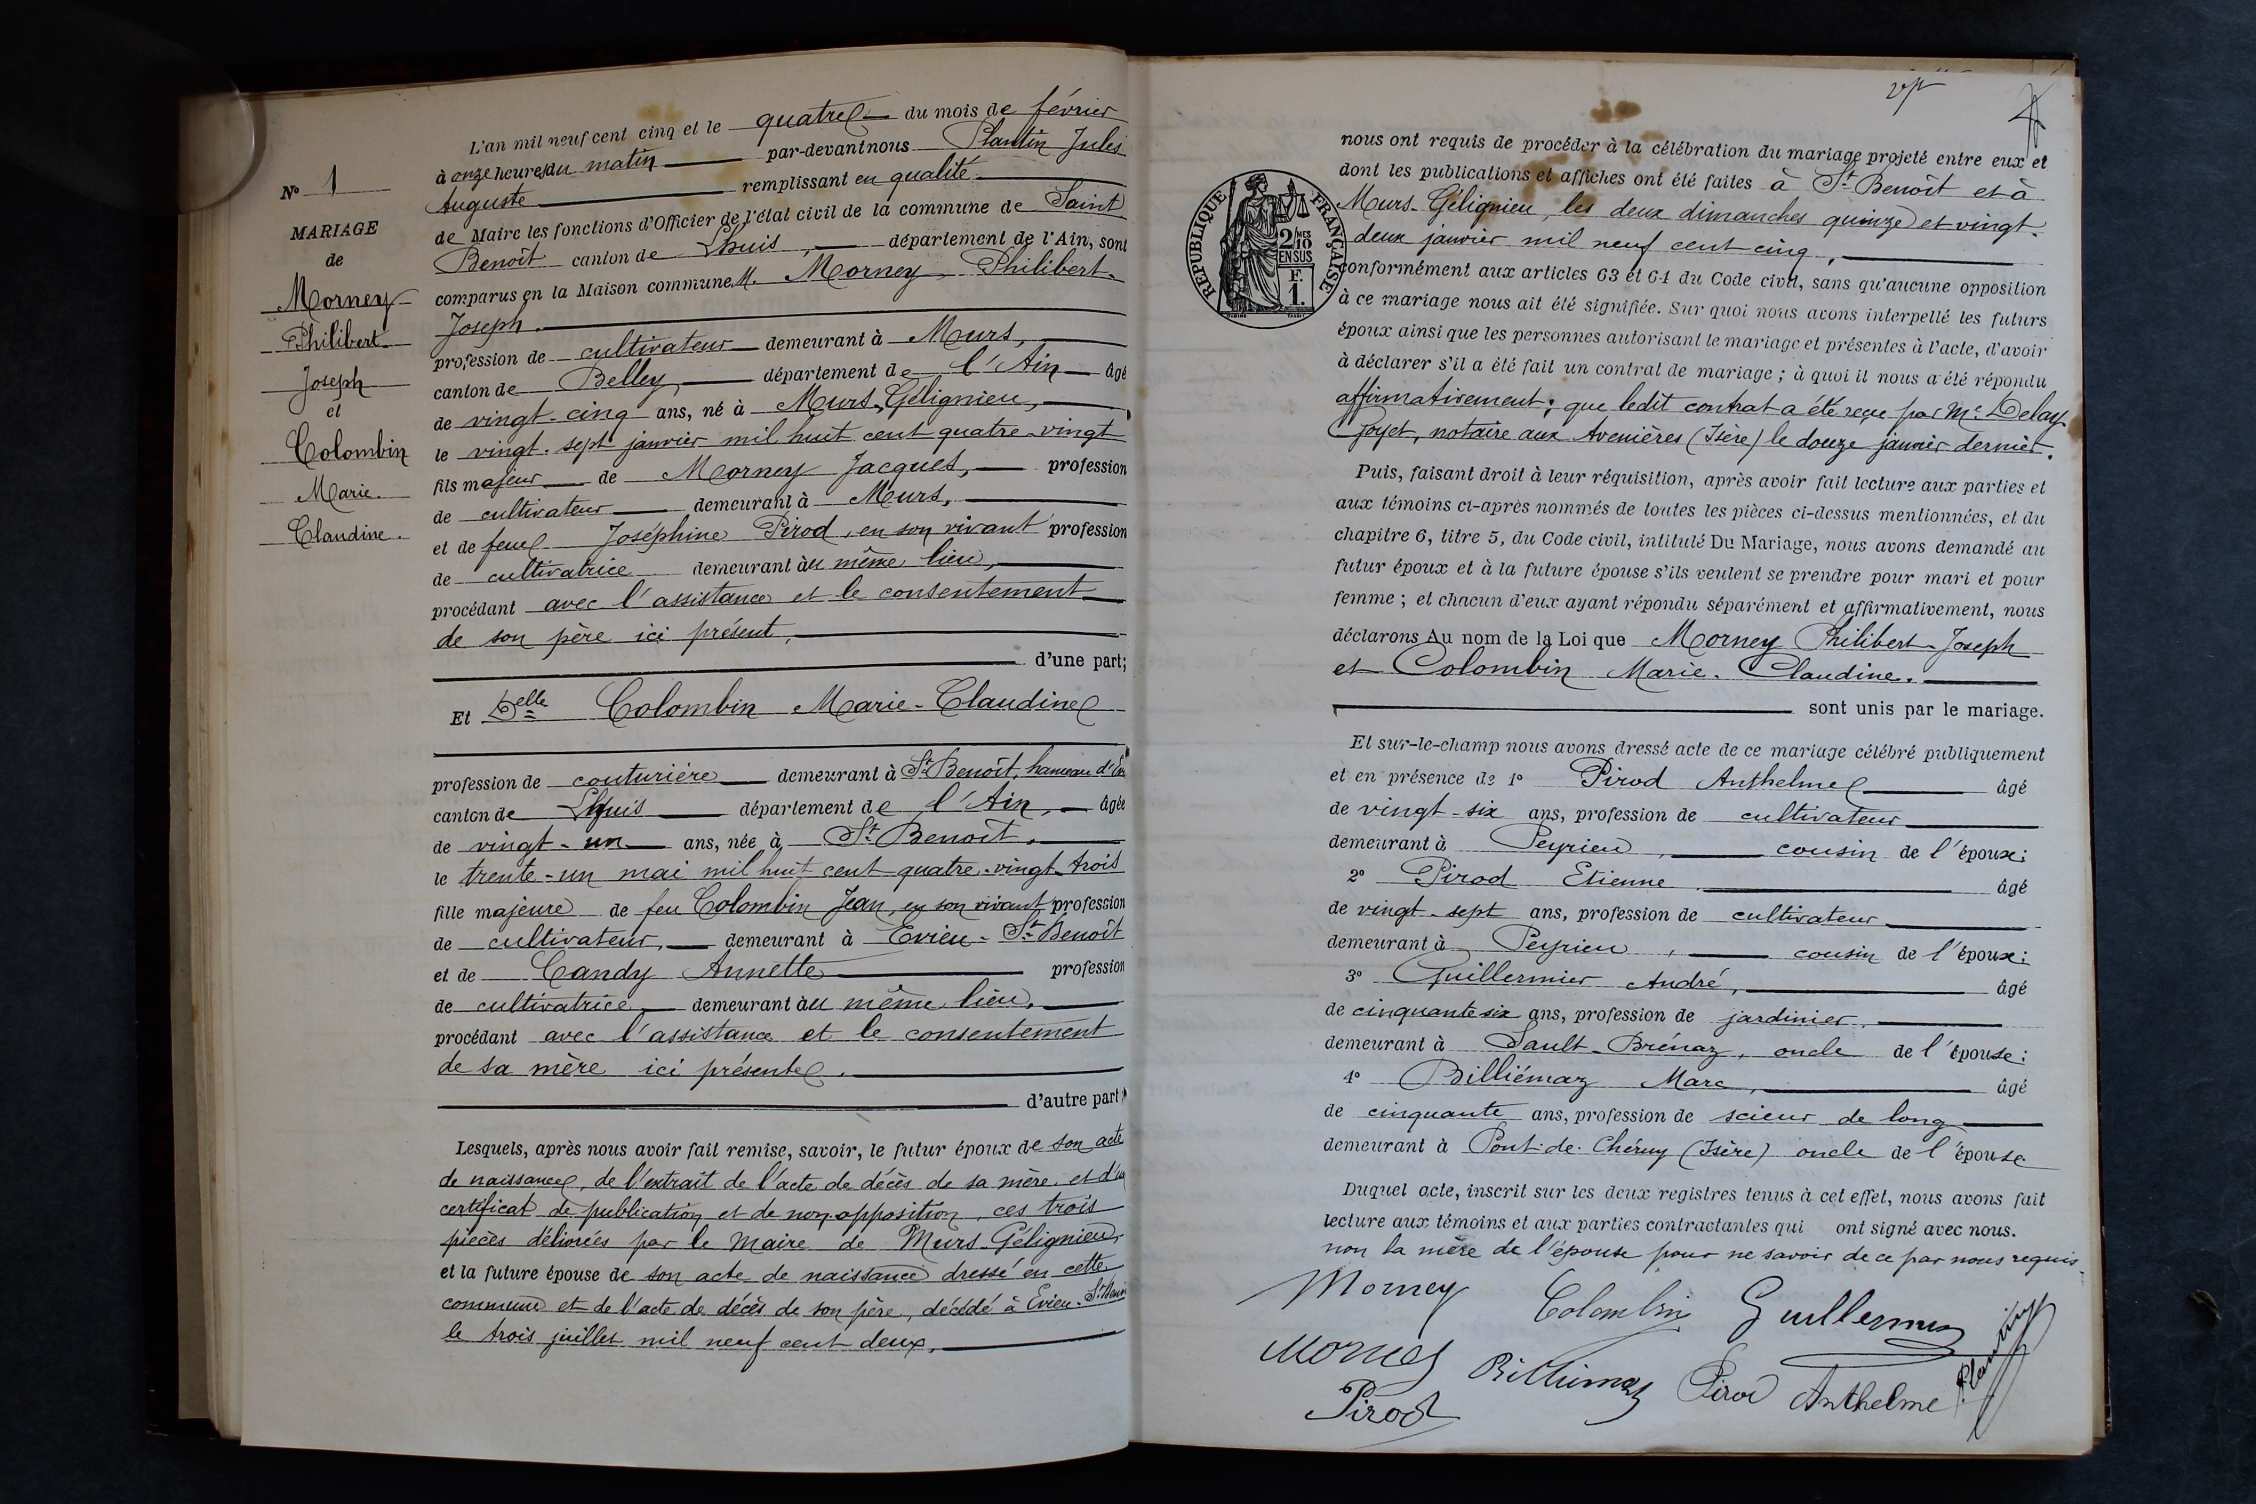 N° 1
MARIAGE
de
Morney
Philibert
Joseph
et
Colombin
Marie.
Claudine.
L'an mil neuf cent cinq et le quatre du mois de février
à onze heures du matin par-devant nous Plantin Jules
Auguste remplissant en qualité
de Maire les fonctions d'Officier de l'état civil de la commune de Saint
Benoît canton de Lhuis, département de l'Ain, sont
comparus en la Maison commune M. Morney Philibert-
Joseph.
profession de cultivateur demeurant à Murs,
canton de Belley, département de l'Ain âgé
de vingt-cinq ans, né à Murs-Gélignieu,
le vingt-sept janvier mil huit cent quatre-vingt
fils majeur de Morney Jacques, profession
de cultivateur demeurant à Murs,
et de feue Joséphine Pirod, en son vivant profession
de cultivatrice demeurant au même lieu,
procédant avec l'assistance et le consentement
de son père ici présent,
d'une part;
Et Delle Colombin Marie-Claudine
profession de couturière demeurant à St Benoît, hameau d'Ev
canton de Lhuis département de l'Ain, âgée
de vingt-un ans, née à St Benoît,
le trente-un mai mil huit cent quatre-vingt-trois
fille majeure de feu Colombin Jean, en son vivant profession
de cultivateur, demeurant à Evieu-St Benoît
et de Candy Annette profession
de cultivatrice demeurant au même lieu,
procédant avec l'assistance et le consentement
de sa mère ici présente.
d'autre part
Lesquels, après nous avoir fait remise, savoir, le futur époux de son acte
de naissance, de l'extrait de l'acte de décès de sa mère et d'un
certificat de publication et de non-opposition, ces trois
pièces délivrées par le Maire de Murs-Gélignieu,
et la future épouse de son acte de naissance dressé en cette
commune et de l'acte de décès de son père, décédé à Evieu-St Benoît
le trois juillet mil neuf cent deux,
RÉPUBLIQUE FRANÇAISE
2/10 MES
EN SUS
F.
1.
nous ont requis de procéder à la célébration du mariage projeté entre eux et
dont les publications et affiches ont été faites à St Benoît et à
Murs-Gélignieu, les deux dimanches quinze et vingt-
deux janvier mil neuf cent cinq,
conformément aux articles 63 et 64 du Code civil, sans qu'aucune opposition
à ce mariage nous ait été signifiée. Sur quoi nous avons interpellé les futurs
époux ainsi que les personnes autorisant le mariage et présentes à l'acte, d'avoir
à déclarer s'il a été fait un contrat de mariage; à quoi il nous a été répondu
affirmativement; que ledit contrat a été reçu par Me Delay
Joyet, notaire aux Avenières (Isère) le douze janvier dernier.
Puis, faisant droit à leur réquisition, après avoir fait lecture aux parties et
aux témoins ci-après nommés de toutes les pièces ci-dessus mentionnées, et du
chapitre 6, titre 5, du Code civil, intitulé Du Mariage, nous avons demandé au
futur époux et à la future épouse s'ils veulent se prendre pour mari et pour
femme; et chacun d'eux ayant répondu séparément et affirmativement, nous
déclarons Au nom de la Loi que Morney Philibert-Joseph
et Colombin Marie-Claudine.
sont unis par le mariage.
Et sur-le-champ nous avons dressé acte de ce mariage célébré publiquement
et en présence de 1° Pirod Anthelme âgé
de vingt-six ans, profession de cultivateur
demeurant à Peyrieu, cousin de l'époux;
2° Pirod Etienne âgé
de vingt-sept ans, profession de cultivateur
demeurant à Peyrieu, cousin de l'époux;
3° Guillermier André, âgé
de cinquante six ans, profession de jardinier,
demeurant à Sault-Brénaz, oncle de l'épouse;
4° Billiémaz Marc, âgé
de cinquante ans, profession de scieur de long
demeurant à Pont-de-Chéruy (Isère) oncle de l'épouse
Duquel acte, inscrit sur les deux registres tenus à cet effet, nous avons fait
lecture aux témoins et aux parties contractantes qui ont signé avec nous.
non la mère de l'épouse pour ne savoir de ce par nous requis
Morney Colombin Guillermier
Morney Billiémaz Pirod Anthelme Plantin
Pirod